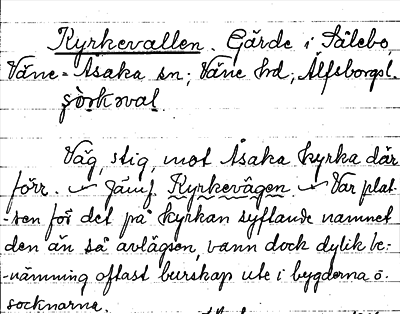 Kyrkevallen. Gärde i Sälebo,
Väne-Åsaka sn; Väne hd; Älfsborgs l.
Väg, stig, mot Åsaka kyrka där
förr. — Jämf. Kyrkevägen. — Var plat-
-sen för det på kyrkan syftande namnet
den än så avlägsen, vann dock dylik be-
-nämning oftast burskap ute i bygderna o.
socknarna.